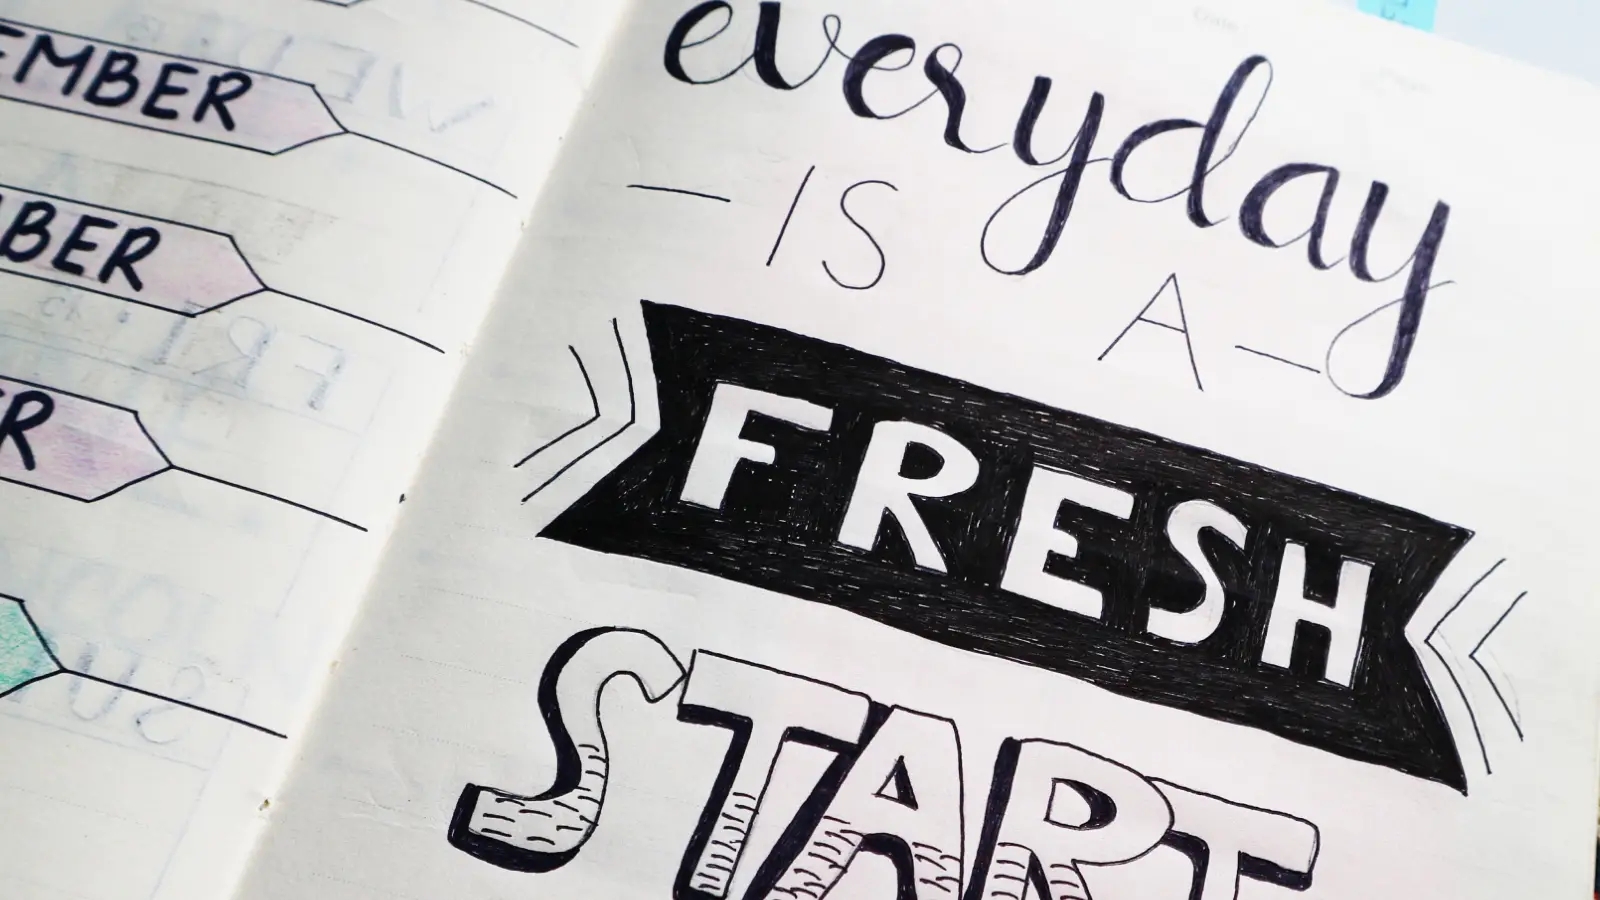 EMBER
BER
ER
everyday
IS A
FRESH
START